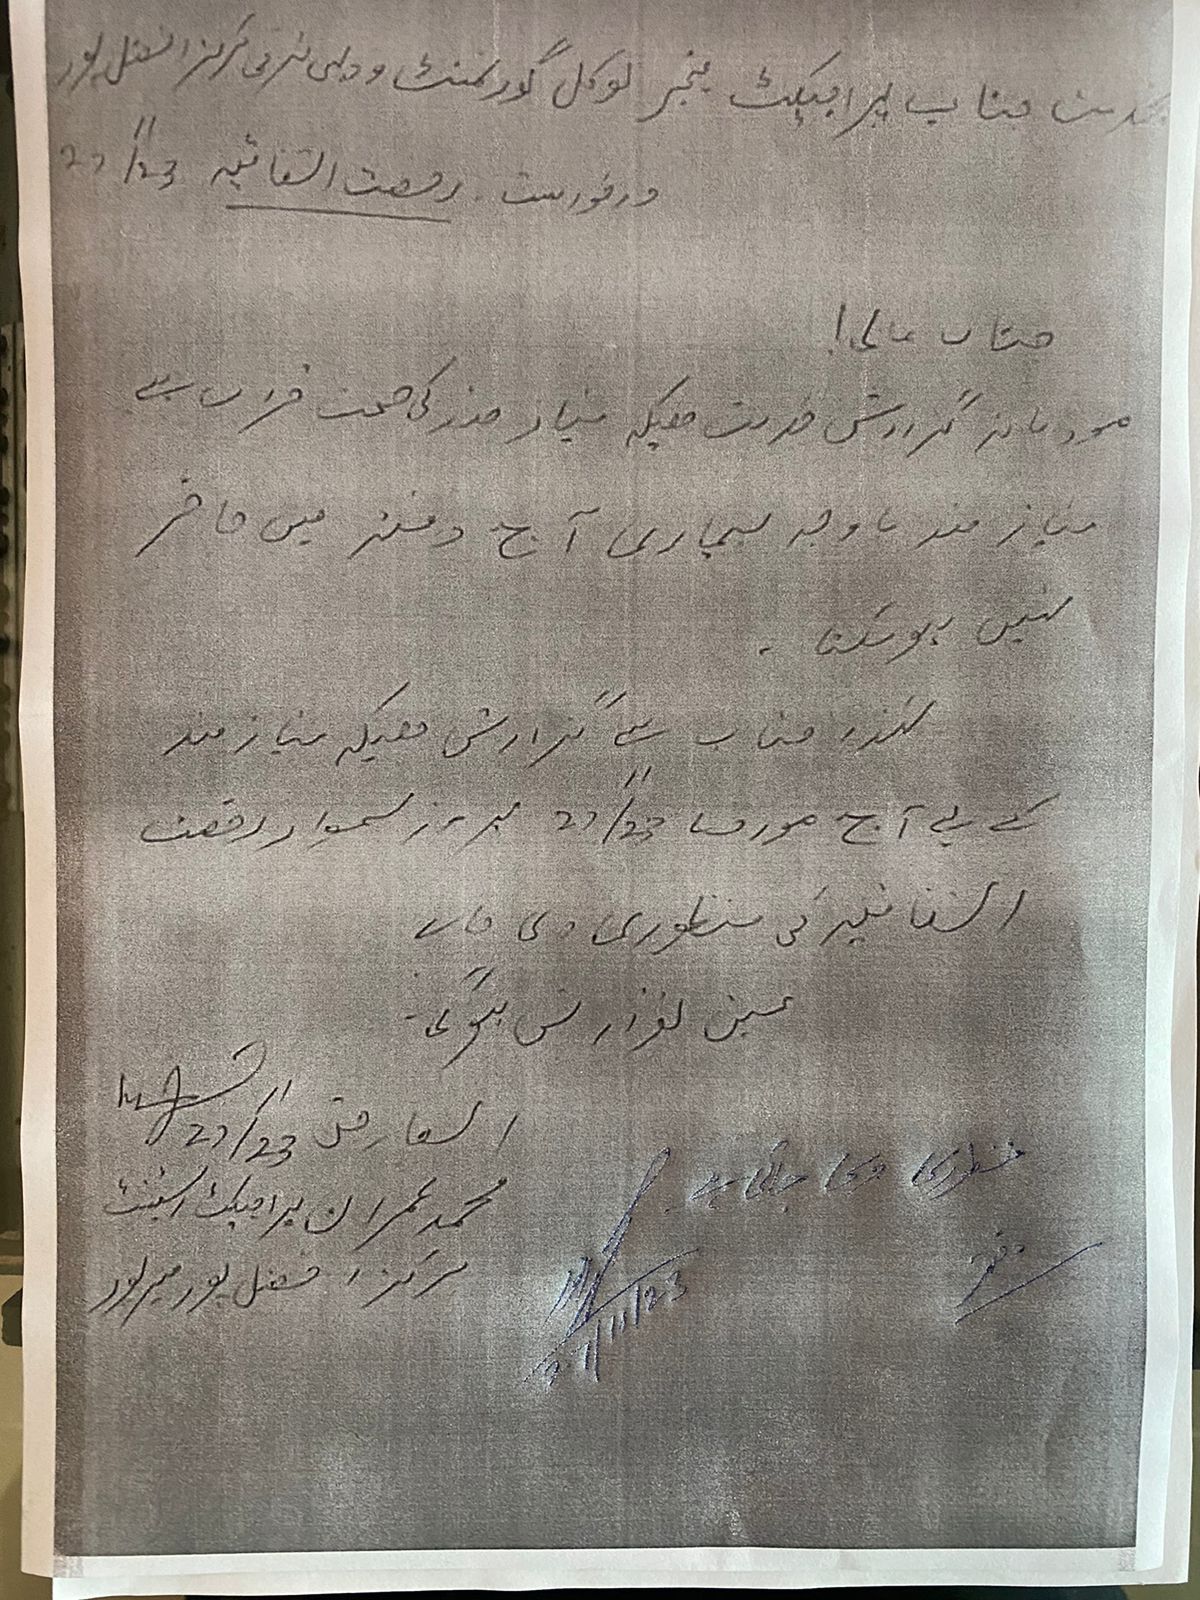 بخدمت جناب پراجیکٹ منیجر لوکل گورنمنٹ و دیہی ترقی مرکز افضل پور
درخواست رخصت اتفاقیہ 27/11/23
جناب عالی!
مودبانہ گزارش خدمت ھیکہ نیاز مند کی صحت خراب ہے
نیاز مند باوجہ بیماری آج دفتر میں حاضر
نہیں ہو سکتا ۔
لہذا جناب سے گزارش ھیکہ نیاز مند
کے لیے آج مورخہ 27/11/23 بروز سوموار رخصت
اتفاقیہ کی منظوری دی جائے
عین نوازش ہوگی۔
العارض 27/11/23
محمد عمران پراجیکٹ اسسٹنٹ
مرکز افضل پور میرپور
منظوری دی جاتی ہے
دفتر
27/11/23